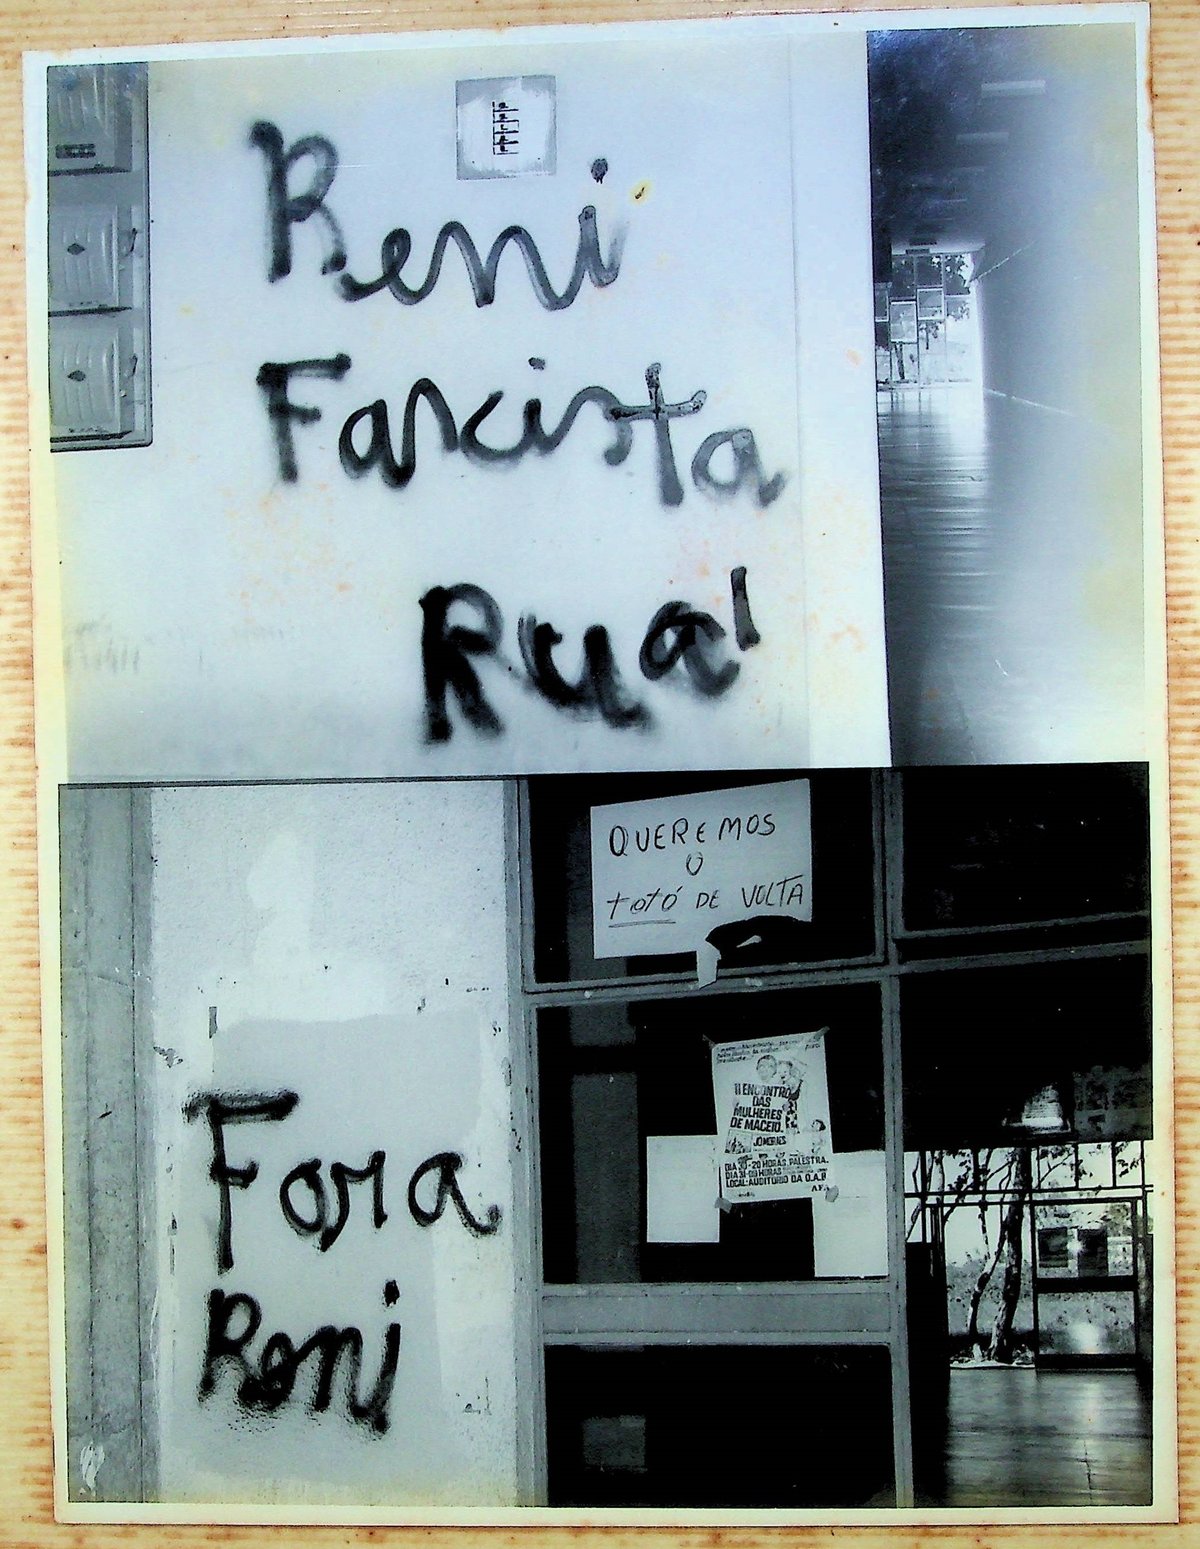 Reni
Fascista
Rua!
QUEREMOS
O
totó DE VOLTA
II ENCONTRO
DAS
MULHERES
DE MACEIO.
JO MORAES
DIA 30-20 HORAS PALESTRA.
DIA 31-09 HORAS
LOCAL: AUDITORIO DA O.A.B
Fora
Reni